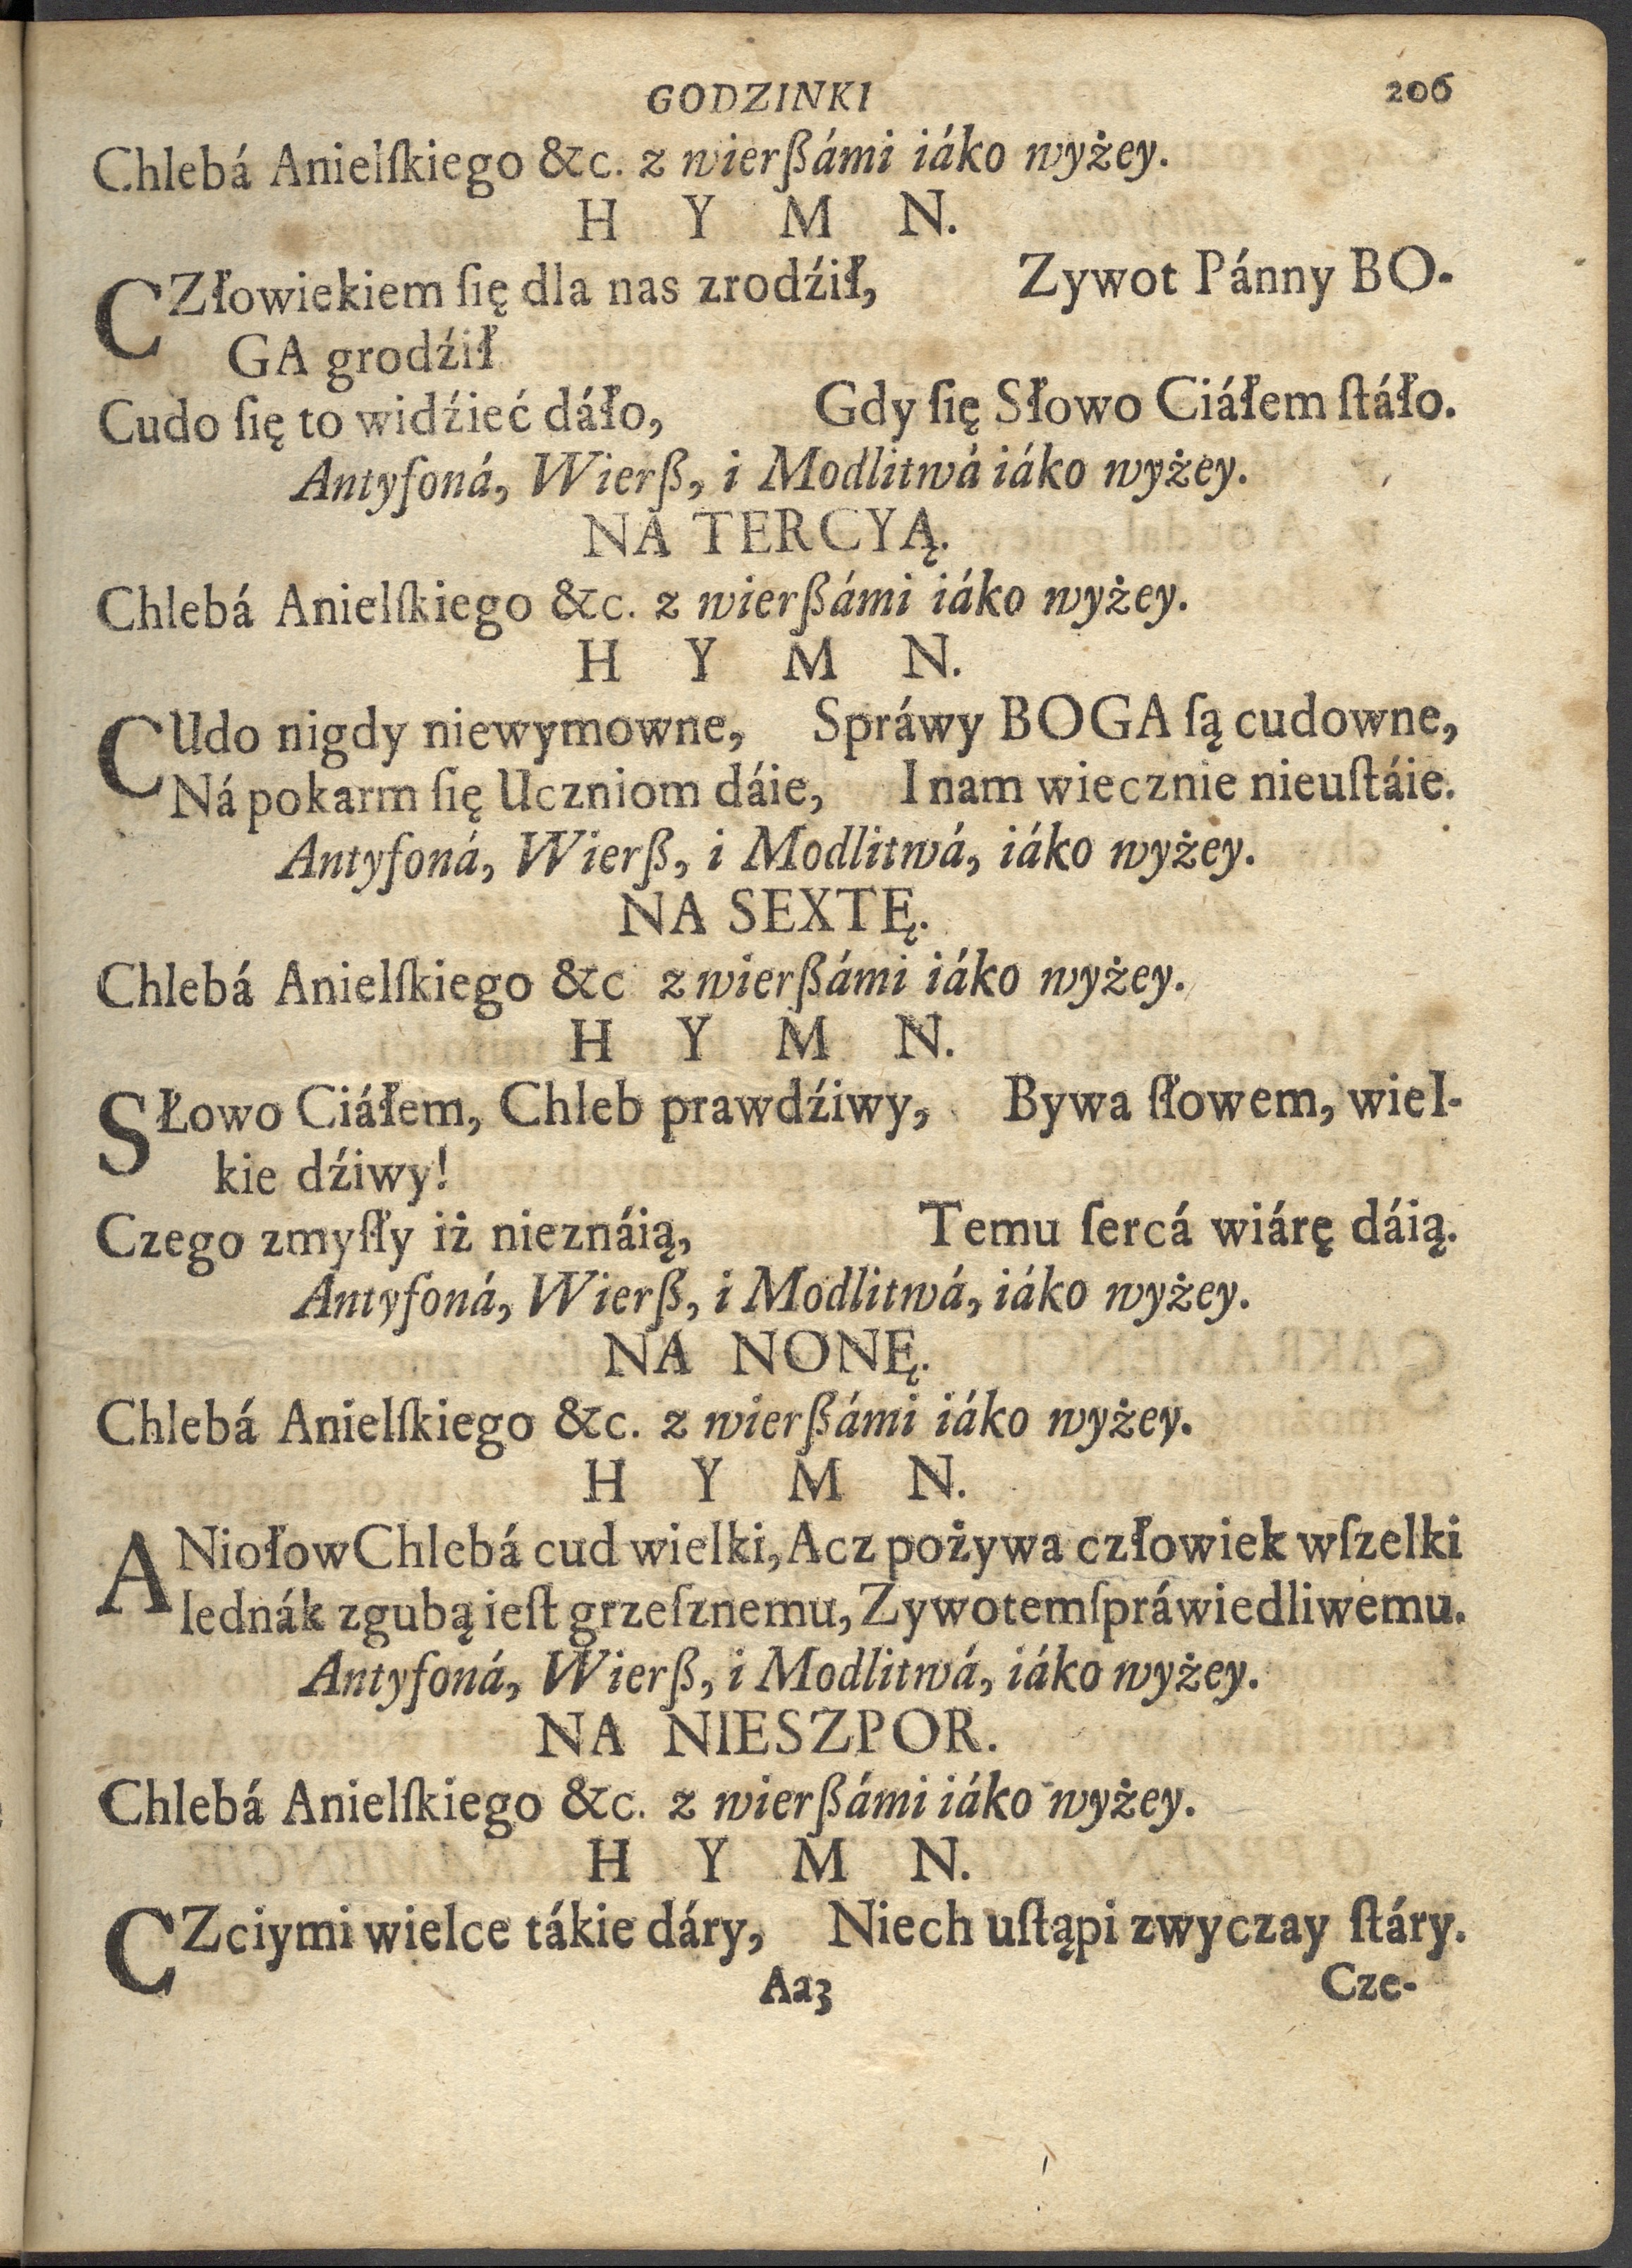 GODZINKI 206
Chlebá Anielſkiego &c. z wierßámi iáko wyżey.
H Y M N.
CZłowiekiem ſię dla nas zrodźił, Zywot Pánny BO-
GA grodźił
Cudo ſię to widźieć dáło, Gdy ſię Słowo Ciáłem ſtáło.
Antyfoná, Wierß, i Modlitwá iáko wyżey.
NA TERCYĄ.
Chlebá Anielſkiego &c. z wierßámi iáko wyżey.
H Y M N.
CUdo nigdy niewymowne, Spráwy BOGA ſą cudowne,
Ná pokarm ſię Uczniom dáie, I nam wiecznie nieuſtáie.
Antyfoná, Wierß, i Modlitwá, iáko wyżey.
NA SEXTĘ.
Chlebá Anielſkiego &c z wierßámi iáko wyżey.
H Y M N.
SŁowo Ciáłem, Chleb prawdźiwy, Bywa ſłowem, wiel-
kie dźiwy!
Czego zmyſły iż nieznáią, Temu ſercá wiárę dáią.
Antyfoná, Wierß, i Modlitwá, iáko wyżey.
NA NONĘ.
Chlebá Anielſkiego &c. z wierßámi iáko wyżey.
H Y M N.
ANiołow Chlebá cud wielki, Acz pożywa człowiek wſzelki
Iednák zgubą ieſt grzeſznemu, Zywotem ſpráwiedliwemu.
Antyfoná, Wierß, i Modlitwá, iáko wyżey.
NA NIESZPOR.
Chlebá Anielſkiego &c. z wierßámi iáko wyżey.
H Y M N.
CZciymi wielce tákie dáry, Niech uſtąpi zwyczay ſtáry.
Aa3 Cze-